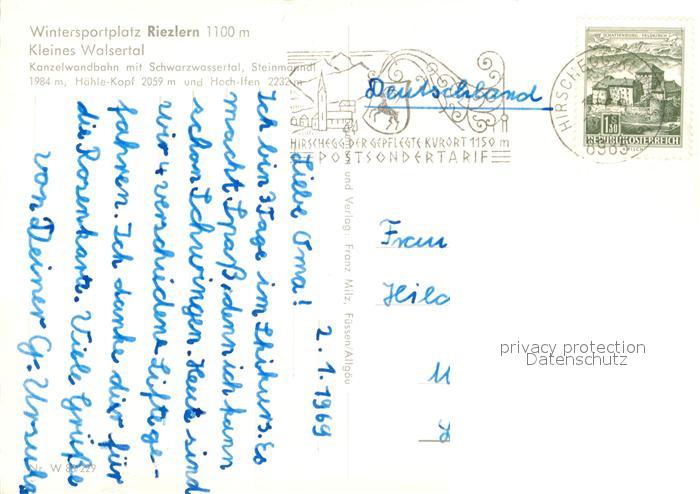 Wintersportplatz Riezlern 1100 m
Kleines Walsertal
Kanzelwandbahn mit Schwarzwassertal, Steinmanndl
1984 m, Höhle-Kopf 2059 m und Hoch-Ifen 2232 m
2.1.1969
Liebe Oma!
Ich bin 3 Tage im Skikurs. Es
macht Spaß, denn ich kann
schon Schwingen. Heute sind
wir 4 verschiedene Lifte ge-
fahren. Ich danke dir für
die Rosenkarte. Viele Grüße
von Deiner G. Ursula
Nr. W 86/229
und Verlag: Franz Milz, Füssen/Allgäu
HIRSCHEGG DER GEPFLEGTE KURORT 1150 m
POSTSONDERTARIF
SCHATTENBURG, FELDKIRCH
1.80
REPUBLIK ÖSTERREICH
HIRSCHEGG
6993
Deutschland
Frau
Hild
M
privacy protection
Datenschutz